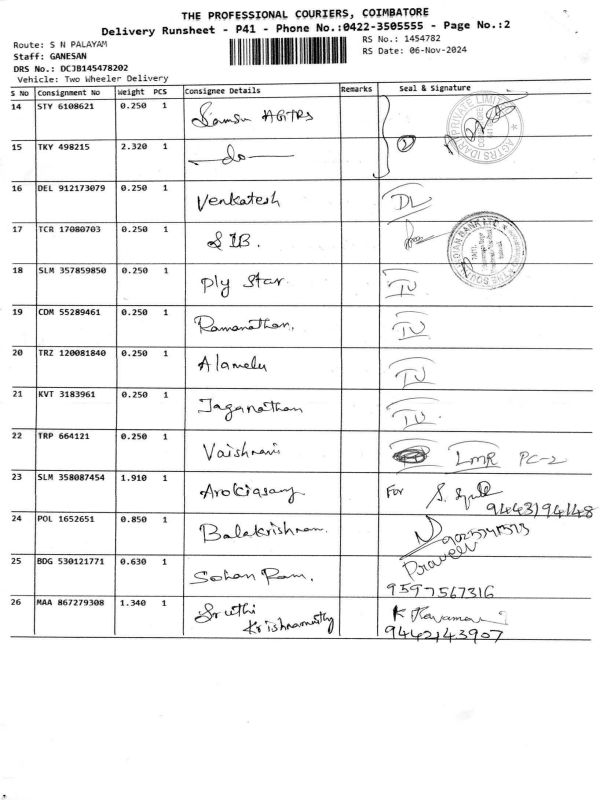 THE PROFESSIONAL COURIERS, COIMBATORE
Delivery Runsheet - P41 - Phone No.:0422-3505555 - Page No.:2
Route: S N PALAYAM
RS No.: 1454782
Staff: GANESAN
RS Date: 06-Nov-2024
DRS No.: DCJB145478202
Vehicle: Two Wheeler Delivery
S No Consignment No Weight PCS Consignee Details Remarks Seal & Signature
14 STY 6108621 0.250 1 AGTRS
15 TKY 498215 2.320 1 -do- 2
16 DEL 912173079 0.250 1 Venkatesh DL
17 TCR 17080703 0.250 1 SIB.
18 SLM 357859850 0.250 1 Ply Star IU
19 CDM 55289461 0.250 1 Ramanathan. IU
20 TRZ 120081840 0.250 1 Alamelu IU
21 KVT 3183961 0.250 1 Jaganathan IU.
22 TRP 664121 0.250 1 Vaishnavi LMR PC-2
23 SLM 358087454 1.910 1 Arokiasamy For S.
9443194148
24 POL 1652651 0.850 1 Balakrishnan.
Praveen
25 BDG 530121771 0.630 1 Sohan Ram. 9597567316
26 MAA 867279308 1.340 1 Sruthi Krishnamurthy K
9442143907